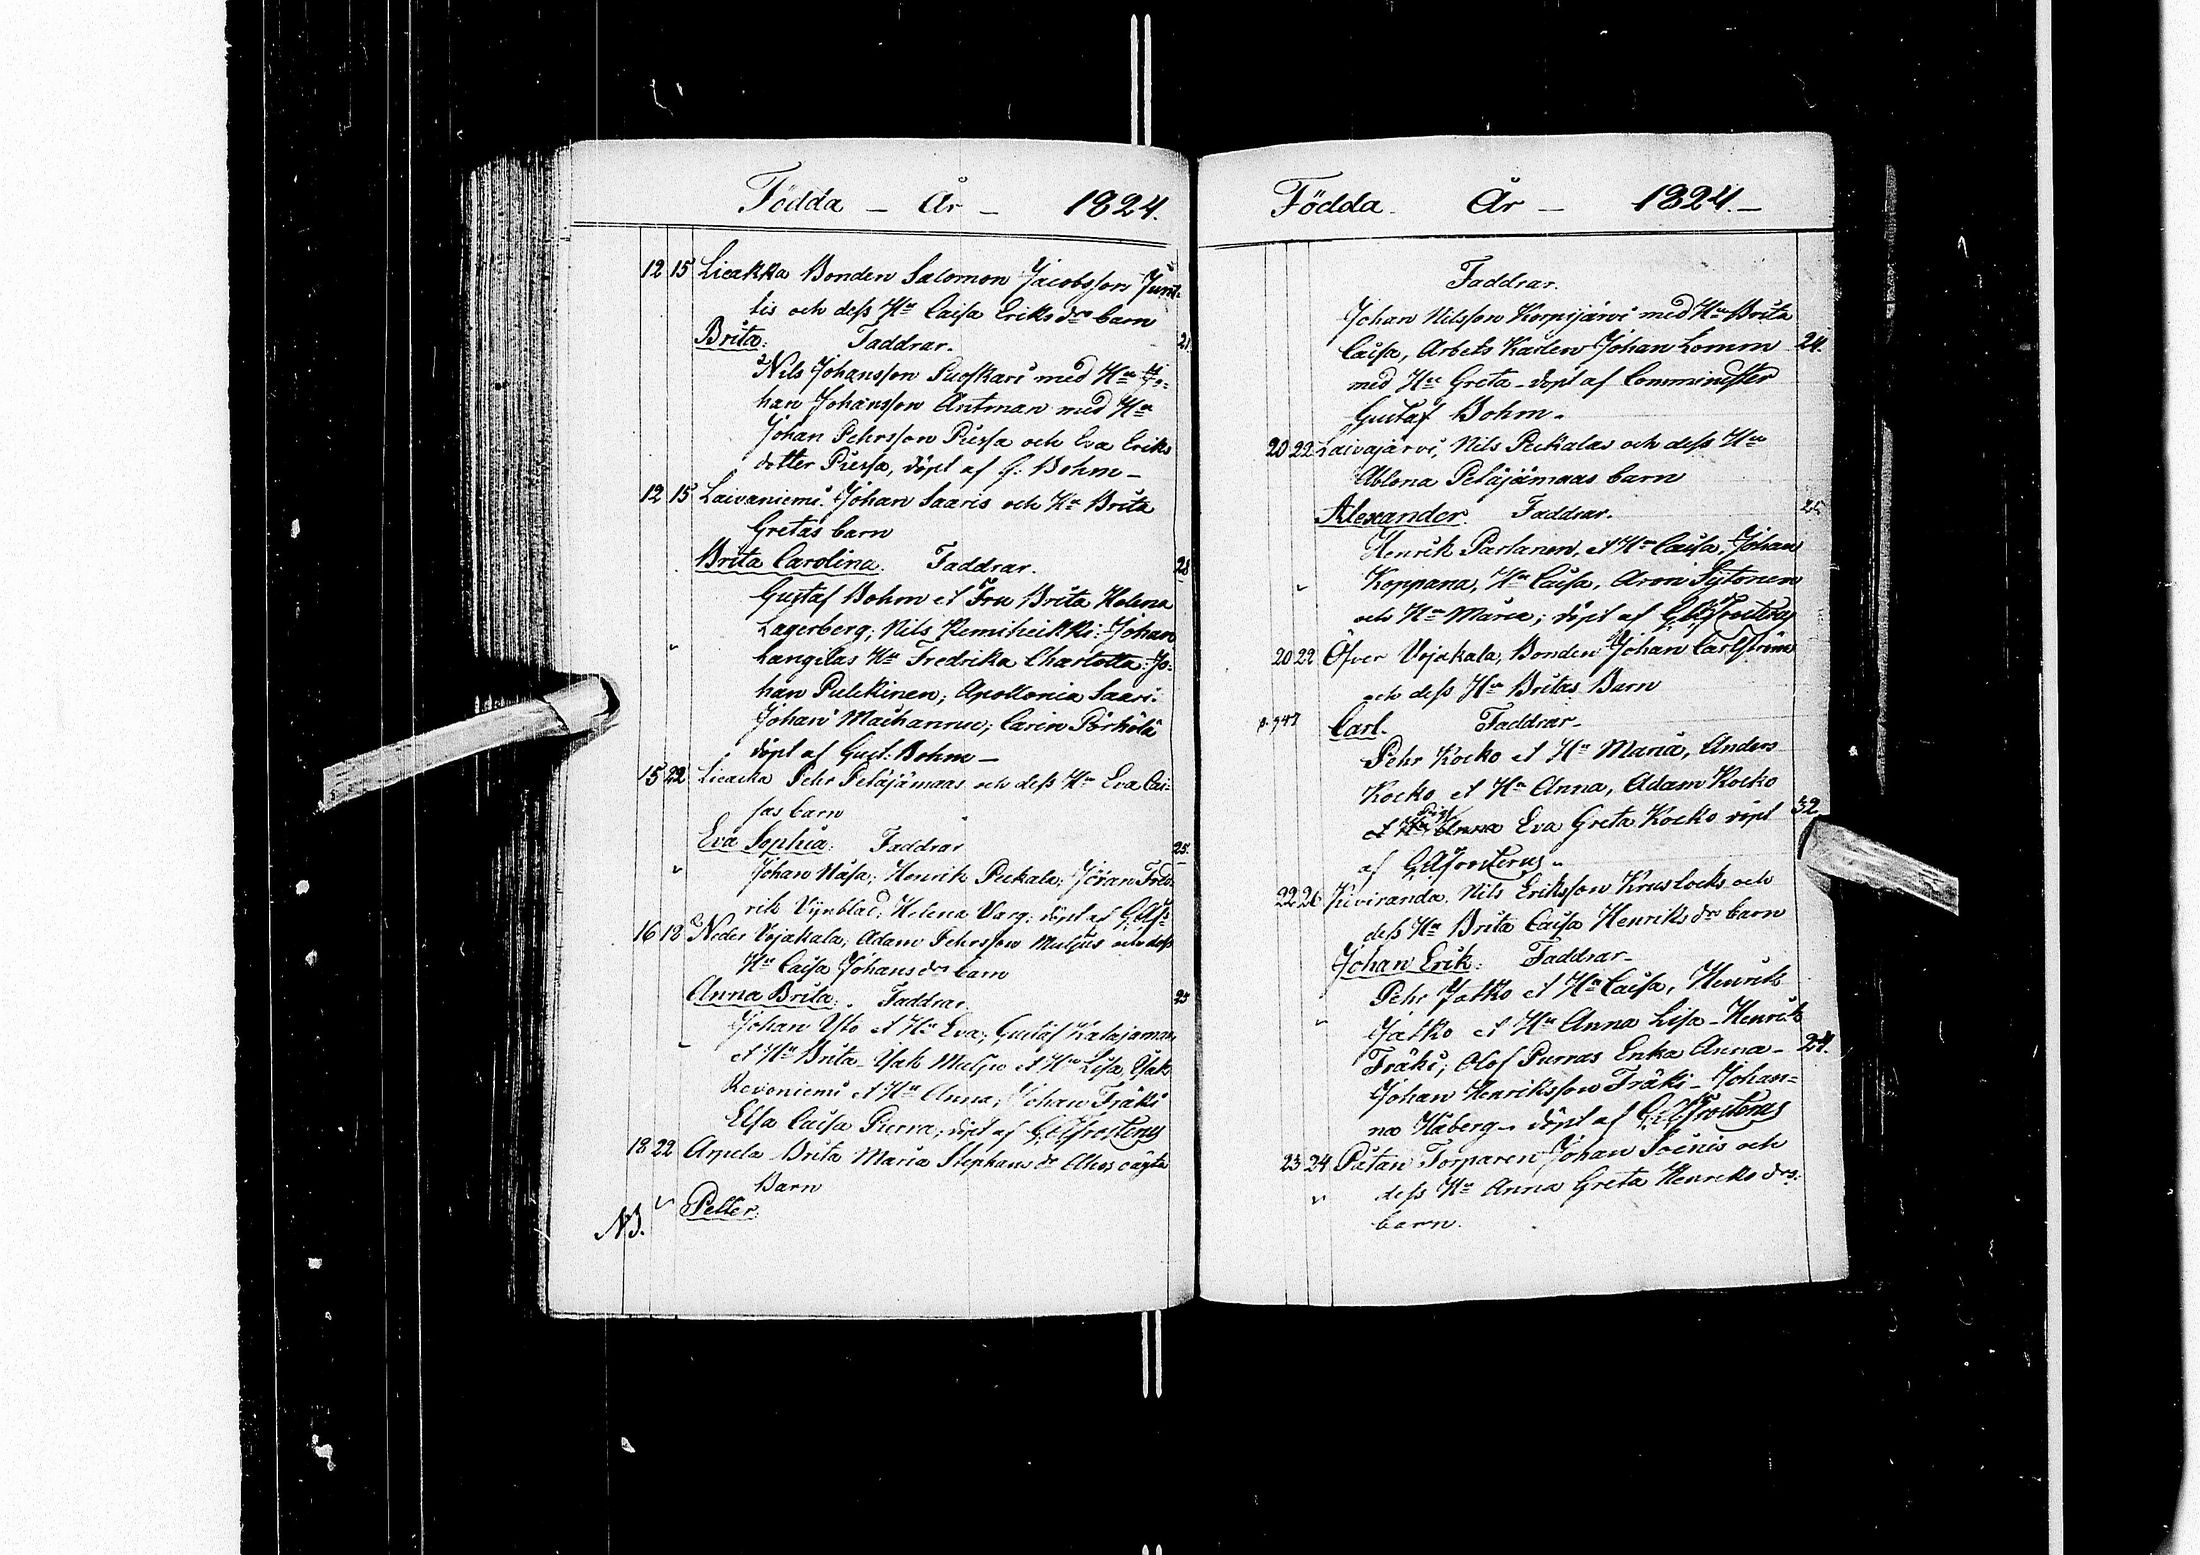 Födda – År – 1824.
12 15 Lieakka Bonden Salomon Jacobsson Junt-
tis och dess Hu Caisa Eriks drs barn
Brita. Faddrar. 21
Nils Johansson Suoskari med Hu Jo-
han Johansson Antman med Hu
Johan Pehrsson Piessa och Eva Eriks
dotter Piessa, döpt af G: Bohm –
12 15 Laivaniemi. Johan Saaris och Hu Brita
Gretas barn
Brita Carolina. Faddrar. 28
Gustaf Bohm et Fru Brita Helena
Lagerberg; Nils Kemiheikki; Johan
Langilas Hu Fredrika Charlotta; Jo-
han Pulckinen; Apollonia Saari.
Johan Maihannu; Carin Pörhölä
döpt af Gust: Bohm –
15 22 Lieacka Pehr Peläjämaas och dess Hu Eva Cai-
sas barn
Eva Sophia: Faddrar 25.
Johan Nasa; Henrik Peckala; Jöran Fred-
rik Vynblad; Helena Varg; döpt af
16 18 Neder Vojakala, Adam Pehrsson Muljus och dess
Hu Caisa Johans drs barn
Anna Brita. Faddrar 25
Johan Ylto et Hu Eva; Gustaf Kalajamaa
et Hu Brita. Isak Muljo et Hu Lisa, Isak
Revoniemi et Hu Anna; Johan Fräki
Elsa Caisa Purra; döpt af G. A. Frosterus
18 22 Arpela Brita Maria Stephans dr oägta
Barn
NB. Petter.
Födda. År – 1824. –
Faddrar.
Johan Nilsson Korpijärvi med Hu Brita
Caisa, Arbets Karlen Johan Lomm 24.
med Hu Greta – döpt af Comminister
Gustaf Bohm.
20 22 Laivajärvi, Nils Peckalas och dess Hu
Ablona Peläjämaas barn
Alexander. Faddrar. 25
Henrik Partanen, et Hu Caisa, Johan
Koppana, Hu Caisa, Aron Sytonen
och Hu Maria; döpt af G. A. Frosterus
20 22 Öfver Vojakala, Bonden Johan Carlström
och dess Hu Britas Barn
p. 947 Carl. Faddrar –
Pehr Kocko et Hu Maria, Anders
Kocko et Hu Anna, Adam Kocko
et Hu Anna Pig. Eva Greta Kocko döpt 32
af G. A. Frosterus –
22 26 Kiviranda, Nils Eriksson Kruslocks och
dess Hu Brita Caisa Henriks drs barn
Johan Erik: Faddrar –
Pehr Jatko et Hu Caisa, Henrik
Jatko et Hu Anna Lisa – Henrik
Fräki; Olof Purras Enka Anna – 24.
Johan Henriksson Fräki – Johan-
na Haberg – döpt af G. A. Frosterus
23 24 Pátan Torparen Johan Soinis och
dess Hu Anna Greta Henriks drs.
barn.